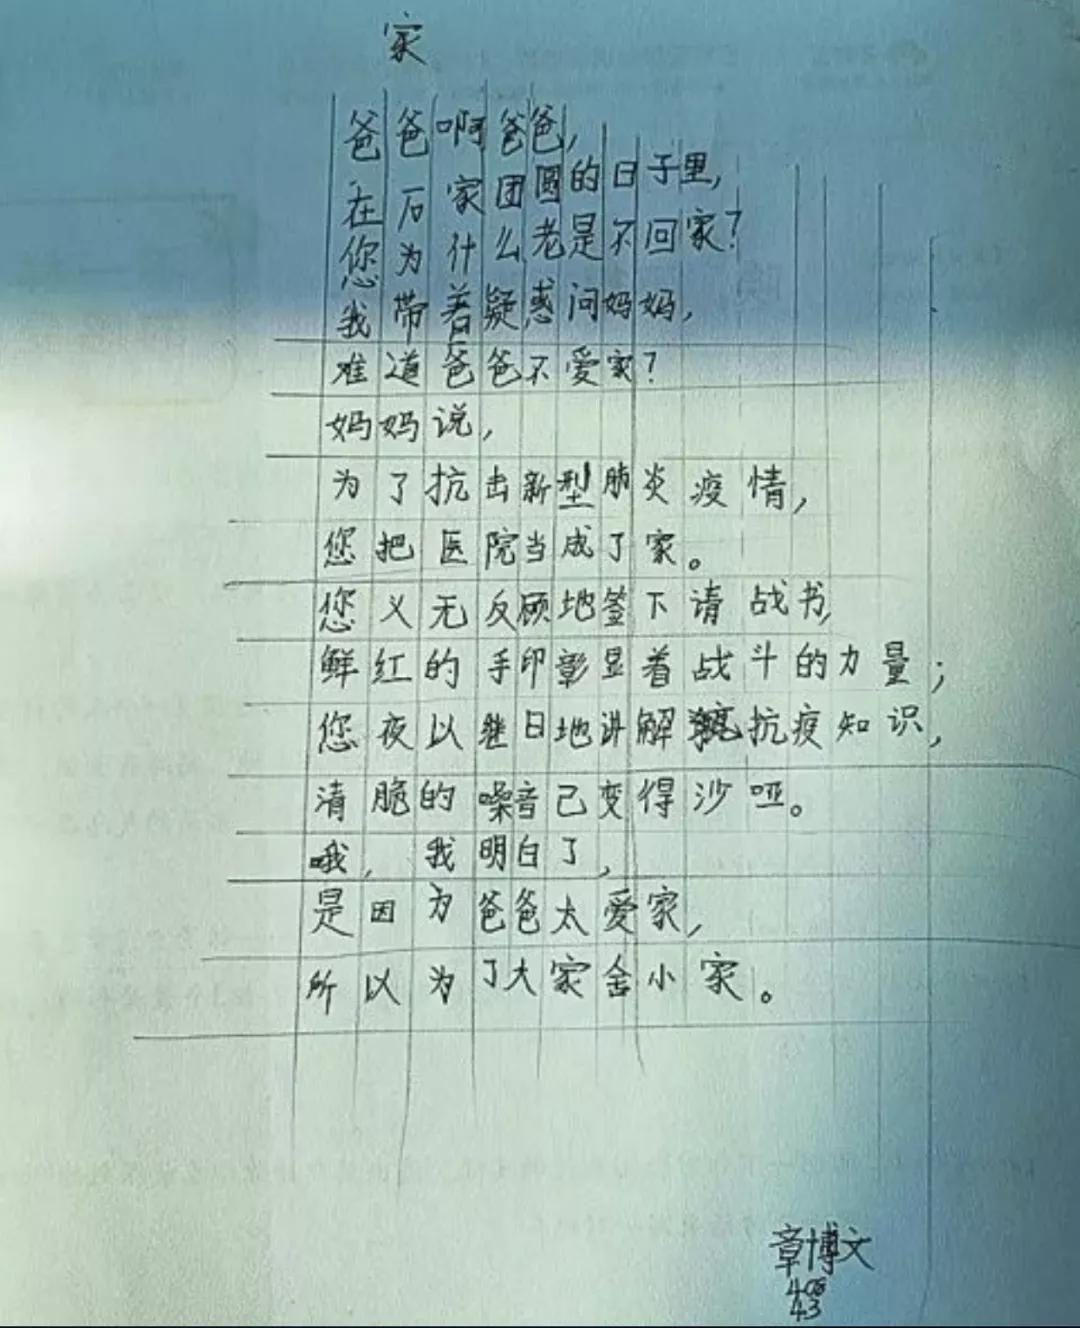 家
爸爸啊爸爸，
在万家团圆的日子里，
您为什么老是不回家？
我带着疑惑问妈妈，
难道爸爸不爱家？
妈妈说，
为了抗击新型肺炎疫情，
您把医院当成了家。
您义无反顾地签下请战书，
鲜红的手印彰显着战斗的力量；
您夜以继日地讲解抗疫知识，
清脆的噪音已变得沙哑。
哦，我明白了，
是因为爸爸太爱家，
所以为了大家舍小家。
章博文
408
43